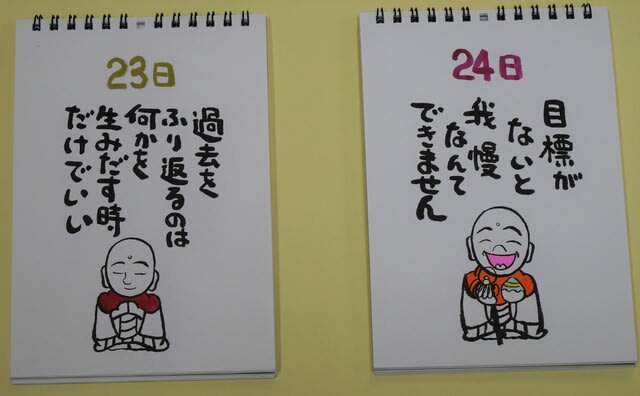 23日
過去を
ふり返るのは
何かを
生みだす時
だけでいい
24日
目標が
ないと
我慢
なんて
できません